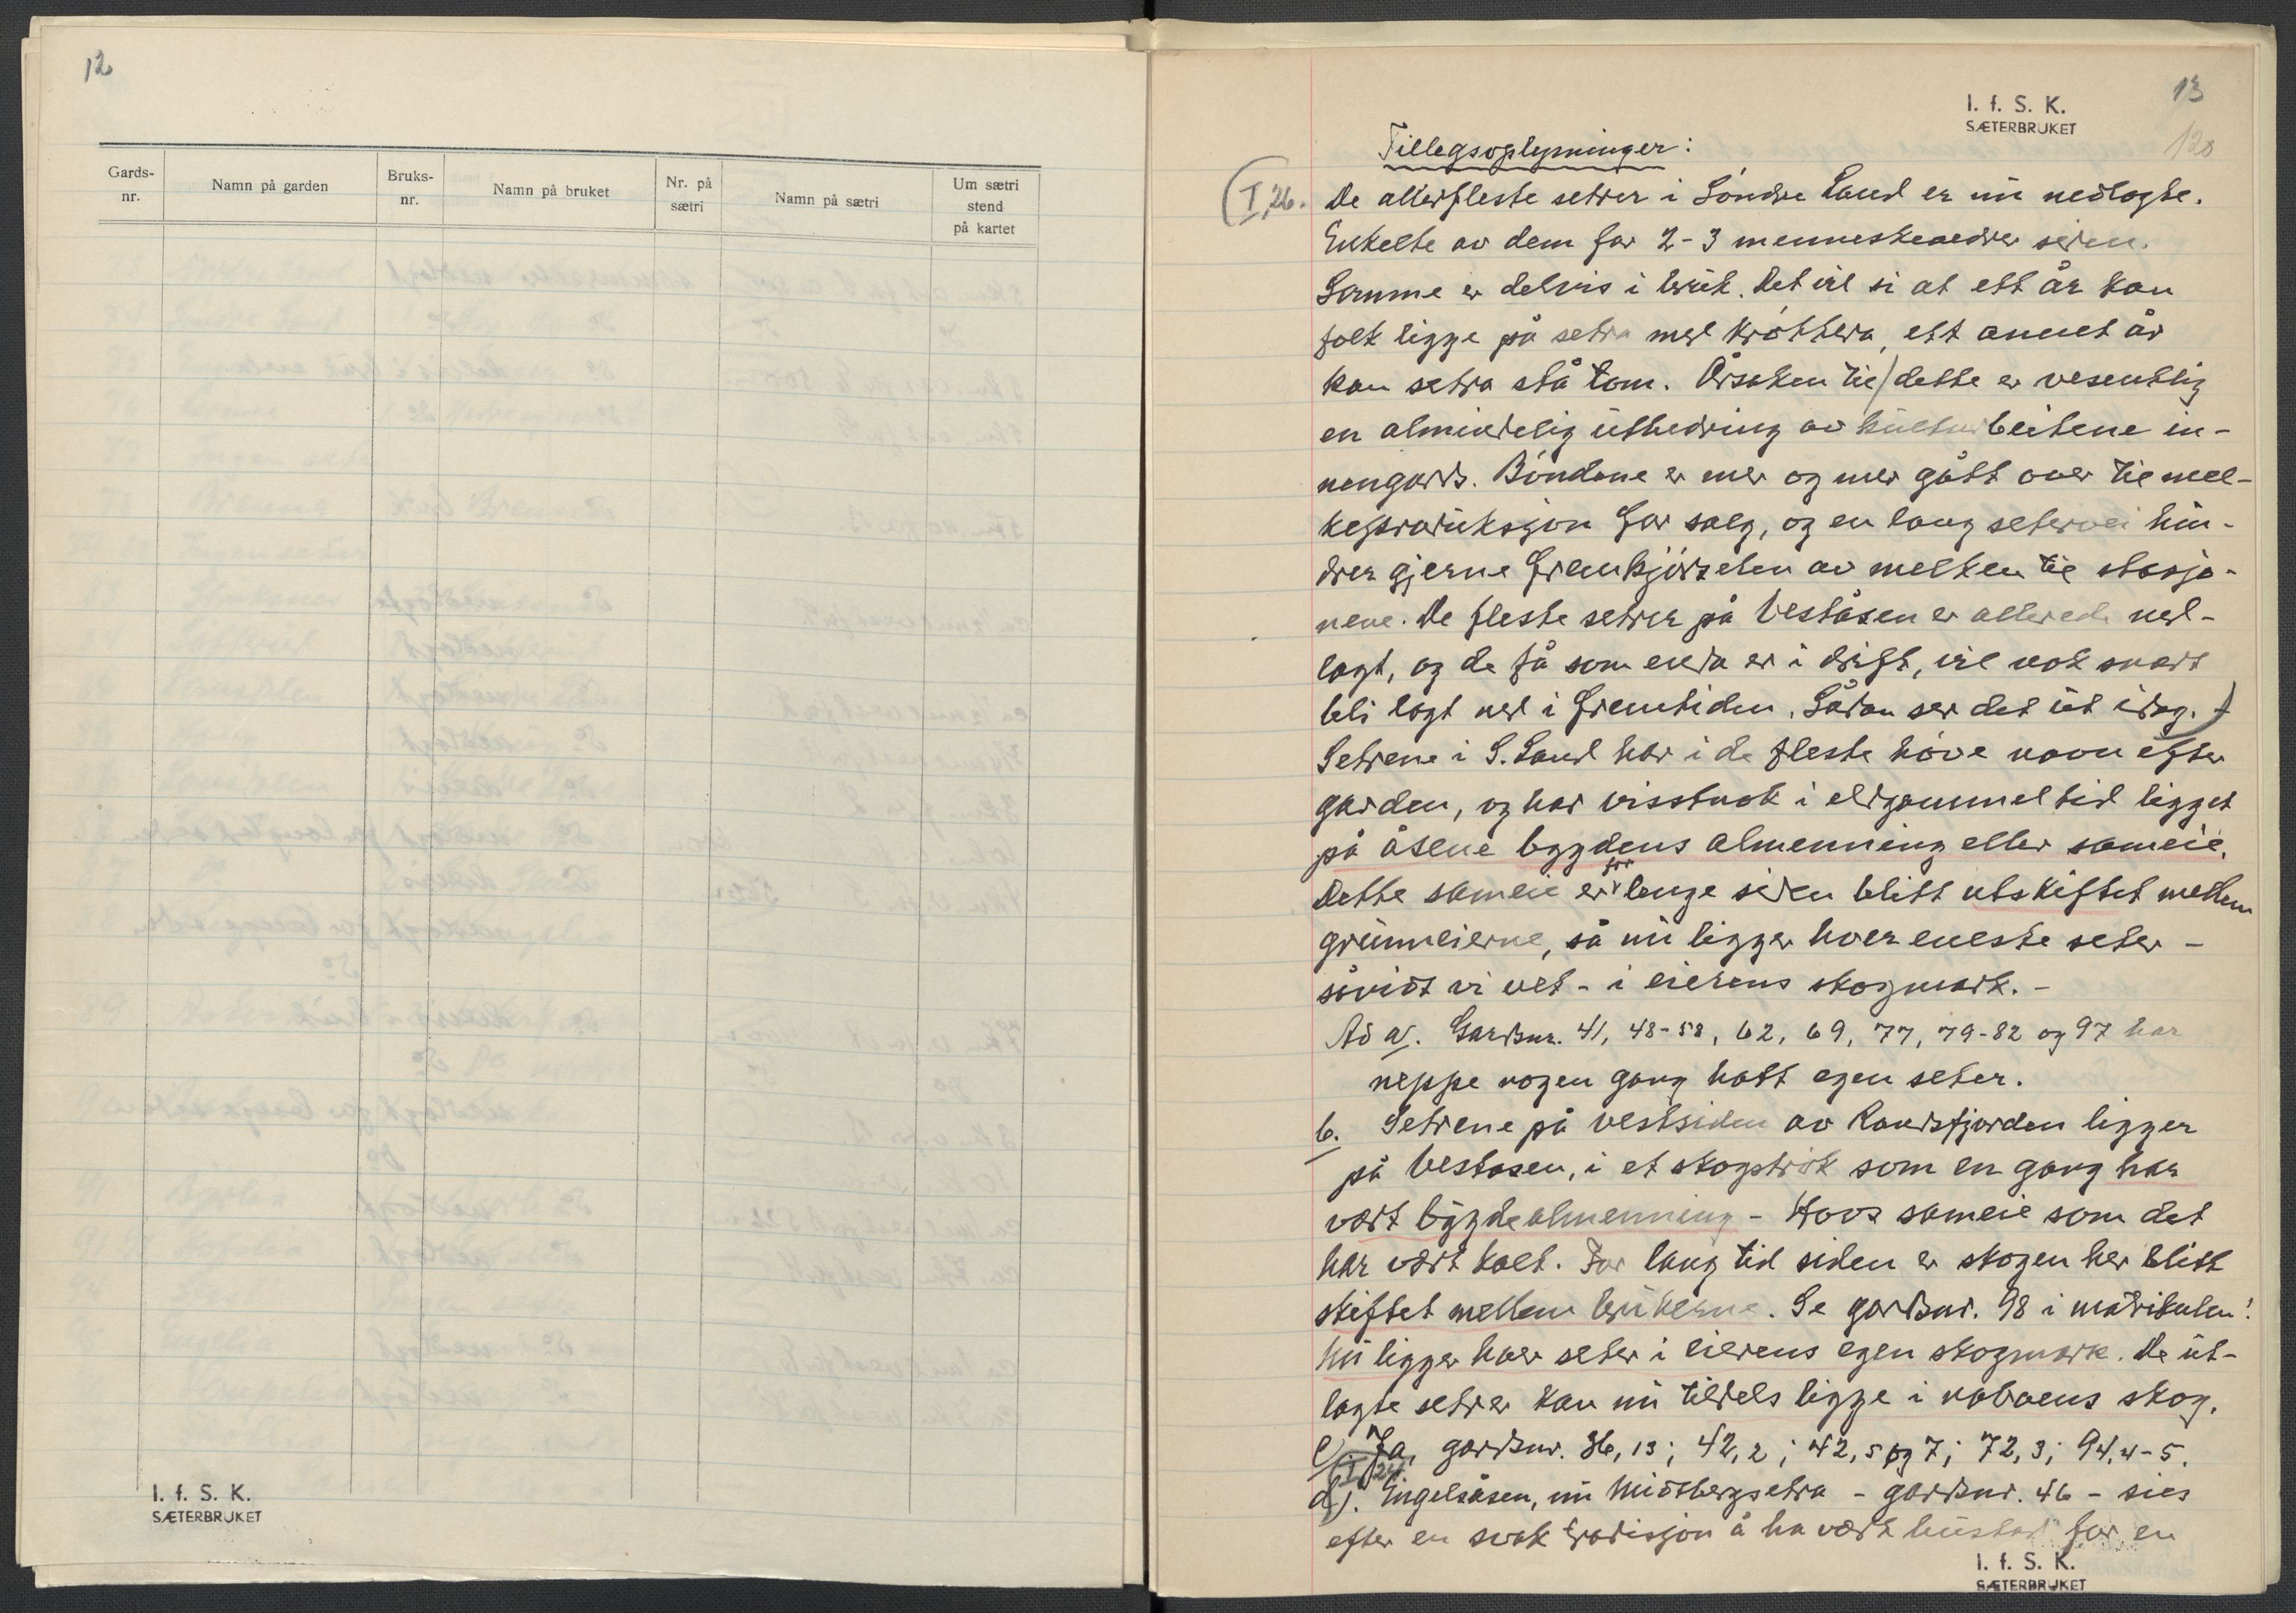 12
Gards-
nr.
Namn på garden
Bruks-
nr.
Namn på bruket
Nr. på
sætri
Namn på sætri
Um sætri
stend
på kartet
I. f. S. K.
SÆTERBRUKET
I. f. S. K.
SÆTERBRUKET
13
120
Tillegsoplysninger:
(I,26. De allerfleste setrer i Søndre Land er nu nedlagte.
Enkelte av dem for 2-3 menneskealdre siden.
Somme er delvis i bruk. Det vil si at ett år kan
folk ligge på setra med krøttera, ett annet år
kan setra stå tom. Årsaken til) dette er vesentlig
en almindelig utbedring av kulturbeitene in-
nengards. Bøndene er mer og mer gått over til mel-
keproduksjon for salg, og en lang setervei hin-
drer gjerne fremkjørselen av melken til stasjo-
nene. De fleste setrer på Veståsen er allerede ned-
lagt, og de få som enda er i drift, vil nok snart
bli lagt ned i fremtiden. Sådan ser det ut idag.)
Setrene i S. Land har i de fleste høve navn efter
garden, og har visstnok i eldgammel tid ligget
på åsene bygdens almenning eller sameie.
Dette sameie er for lenge siden blitt utskiftet mellem
grunneierne, så nu ligger hver eneste seter -
såvidt vi vet - i eierens skogmark. -
Ad a). Gardsnr. 41, 48-58, 62, 69, 77, 79-82 og 97 har
neppe nogen gang hatt egen seter.
b. Setrene på vestsiden av Randsfjorden ligger
på Veståsen, i et skogstrøk som en gang har
vært bygdealmenning - Hovs sameie som det
har vært kalt. For lang tid siden er skogen her blitt
skiftet mellem brukerne. Se gardsnr. 98 i matrikulen!
Nu ligger hver seter i eierens egen skogmark. De ut-
lagte setrer kan nu tildels ligge i naboens skog.
c) Ja, gardsnr. 36,13; 42,2; 42,5 og 7; 72,3; 94,4-5.
(I,24.
d). Engelsåsen, nu Midtbergsetra - gardsnr. 46 - sies
efter en svak tradisjon å ha vært bustad for en
I. f. S. K.
SÆTERBRUKET